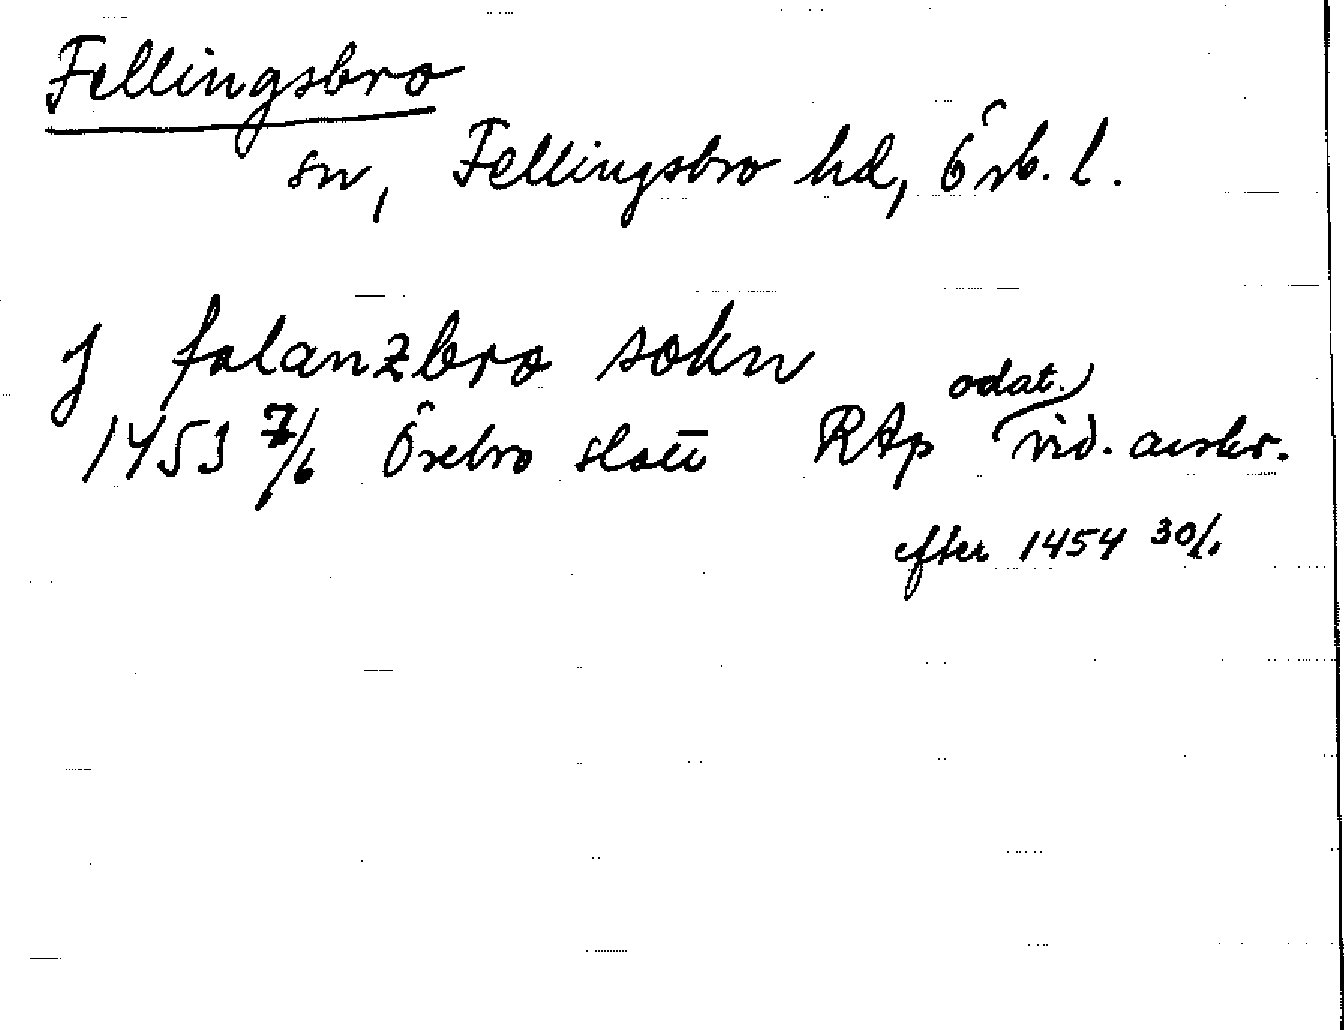 Fellingsbro
sn, Fellingsbro hd, Örb. l.
J falanzbro sokn
1453 7/6 Örebro slott RAp odat. vid. avskr.
efter 1454 30/1